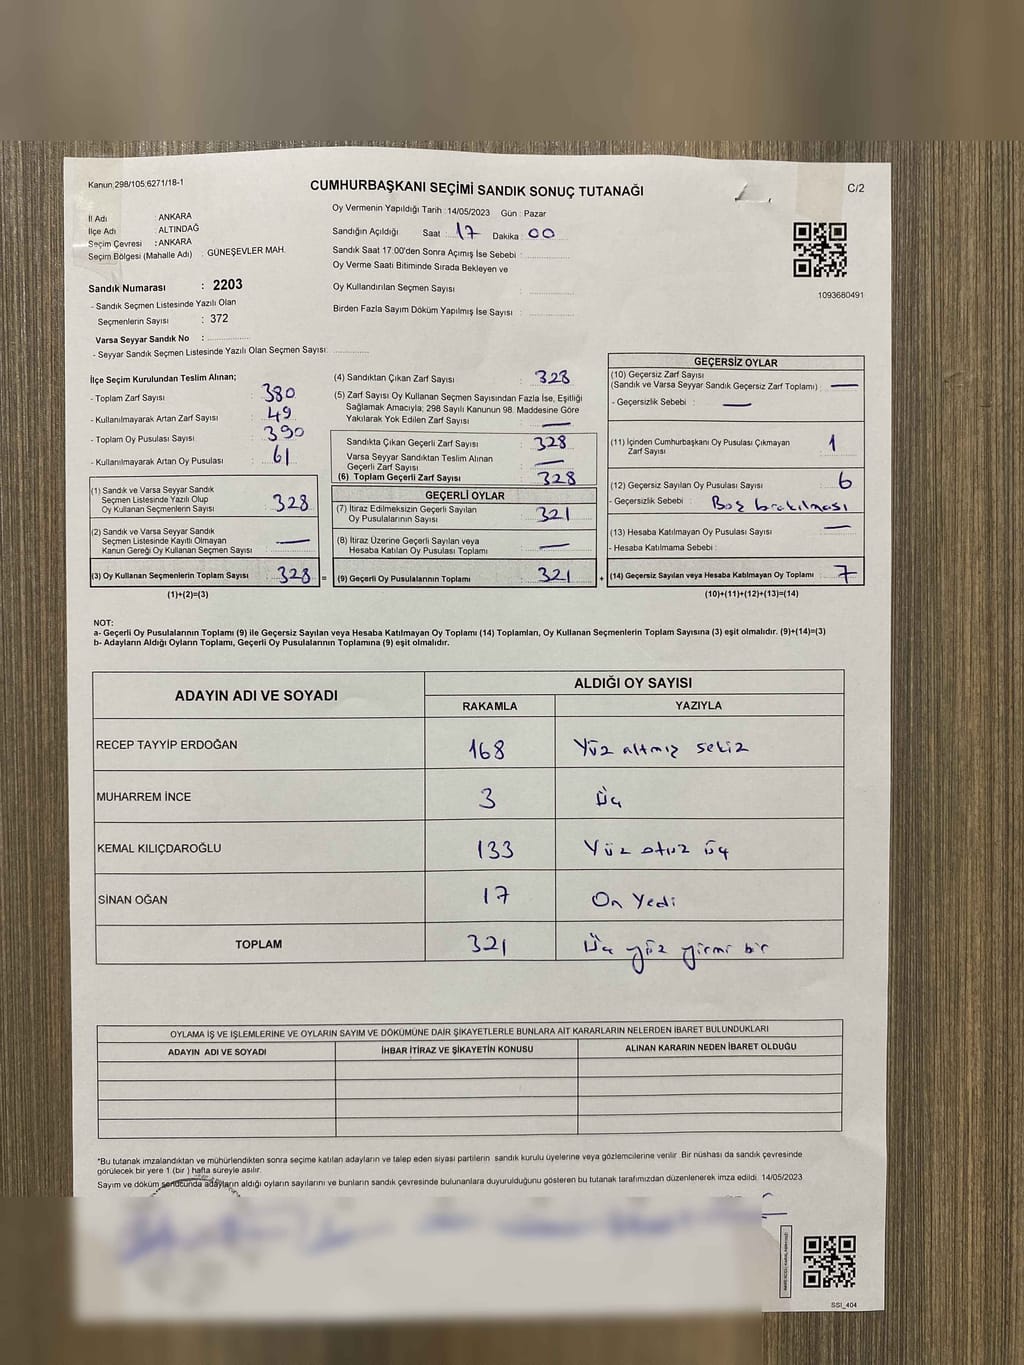 Kanun 298/105,6271/18-1
CUMHURBAŞKANI SEÇİMİ SANDIK SONUÇ TUTANAĞI
C/2
İl Adı : ANKARA
İlçe Adı : ALTINDAĞ
Seçim Çevresi : ANKARA
Seçim Bölgesi (Mahalle Adı) : GÜNEŞEVLER MAH.
Sandık Numarası : 2203
- Sandık Seçmen Listesinde Yazılı Olan
Seçmenlerin Sayısı : 372
Varsa Seyyar Sandık No :
- Seyyar Sandık Listesinde Yazılı Olan Seçmen Sayısı:
Oy Vermenin Yapıldığı Tarih : 14/05/2023 Gün : Pazar
Sandığın Açıldığı Saat : 17 Dakika : 00
Sandık Saat 17:00'den Sonra Açımış İse Sebebi :
Oy Verme Saati Bitiminde Sırada Bekleyen ve
Oy Kullandırılan Seçmen Sayısı :
Birden Fazla Sayım Döküm Yapılmış İse Sayısı :
1093680491
İlçe Seçim Kurulundan Teslim Alınan;
- Toplam Zarf Sayısı : 380
- Kullanılmayarak Artan Zarf Sayısı : 49
- Toplam Oy Pusulası Sayısı : 390
- Kullanılmayarak Artan Oy Pusulası : 61
(1) Sandık ve Varsa Seyyar Sandık
Seçmen Listesinde Yazılı Olup
Oy Kullanan Seçmenlerin Sayısı : 328
(2) Sandık ve Varsa Seyyar Sandık
Seçmen Listesinde Kayıtlı Olmayan
Kanun Gereği Oy Kullanan Seçmen Sayısı : —
(3) Oy Kullanan Seçmenlerin Toplam Sayısı : 328 =
(1)+(2)=(3)
(4) Sandıktan Çıkan Zarf Sayısı : 328
(5) Zarf Sayısı Oy Kullanan Seçmen Sayısından Fazla İse, Eşitliği
Sağlamak Amacıyla; 298 Sayılı Kanunun 98. Maddesine Göre
Yakılarak Yok Edilen Zarf Sayısı : —
Sandıkta Çıkan Geçerli Zarf Sayısı : 328
Varsa Seyyar Sandıktan Teslim Alınan
Geçerli Zarf Sayısı : —
(6) Toplam Geçerli Zarf Sayısı : 328
GEÇERLİ OYLAR
(7) İtiraz Edilmeksizin Geçerli Sayılan
Oy Pusulalarının Sayısı : 321
(8) İtiraz Üzerine Geçerli Sayılan veya
Hesaba Katılan Oy Pusulası Toplamı : —
(9) Geçerli Oy Pusulalarının Toplamı : 321 +
GEÇERSİZ OYLAR
(10) Geçersiz Zarf Sayısı
(Sandık ve Varsa Seyyar Sandık Geçersiz Zarf Toplamı) : —
- Geçersizlik Sebebi : —
(11) İçinden Cumhurbaşkanı Oy Pusulası Çıkmayan
Zarf Sayısı : 1
(12) Geçersiz Sayılan Oy Pusulası Sayısı : 6
- Geçersizlik Sebebi : Boş bırakılması
(13) Hesaba Katılmayan Oy Pusulası Sayısı : —
- Hesaba Katılmama Sebebi :
(14) Geçersiz Sayılan veya Hesaba Katılmayan Oy Toplamı : 7
(10)+(11)+(12)+(13)=(14)
NOT:
a- Geçerli Oy Pusulalarının Toplamı (9) ile Geçersiz Sayılan veya Hesaba Katılmayan Oy Toplamı (14) Toplamları, Oy Kullanan Seçmenlerin Toplam Sayısına (3) eşit olmalıdır. (9)+(14)=(3)
b- Adayların Aldığı Oyların Toplamı, Geçerli Oy Pusulalarının Toplamına (9) eşit olmalıdır.
ADAYIN ADI VE SOYADI ALDIĞI OY SAYISI
RAKAMLA YAZIYLA
RECEP TAYYİP ERDOĞAN 168 Yüz altmış sekiz
MUHARREM İNCE 3 Üç
KEMAL KILIÇDAROĞLU 133 Yüz otuz üç
SİNAN OĞAN 17 On Yedi
TOPLAM 321 Üç yüz yirmi bir
OYLAMA İŞ VE İŞLEMLERİNE VE OYLARIN SAYIM VE DÖKÜMÜNE DAİR ŞİKAYETLERLE BUNLARA AİT KARARLARIN NELERDEN İBARET BULUNDUKLARI
ADAYIN ADI VE SOYADI İHBAR İTİRAZ VE ŞİKAYETİN KONUSU ALINAN KARARIN NEDEN İBARET OLDUĞU
*Bu tutanak imzalandıktan ve mühürlendikten sonra seçime katılan adayların ve talep eden siyasi partilerin sandık kurulu üyelerine veya gözlemcilerine verilir. Bir nüshası da sandık çevresinde
görülecek bir yere 1 (bir) hafta süreyle asılır.
Sayım ve döküm sonucunda adayların aldığı oyların sayılarını ve bunların sandık çevresinde bulunanlara duyurulduğunu gösteren bu tutanak tarafımızdan düzenlenerek imza edildi. 14/05/2023
SSI_404